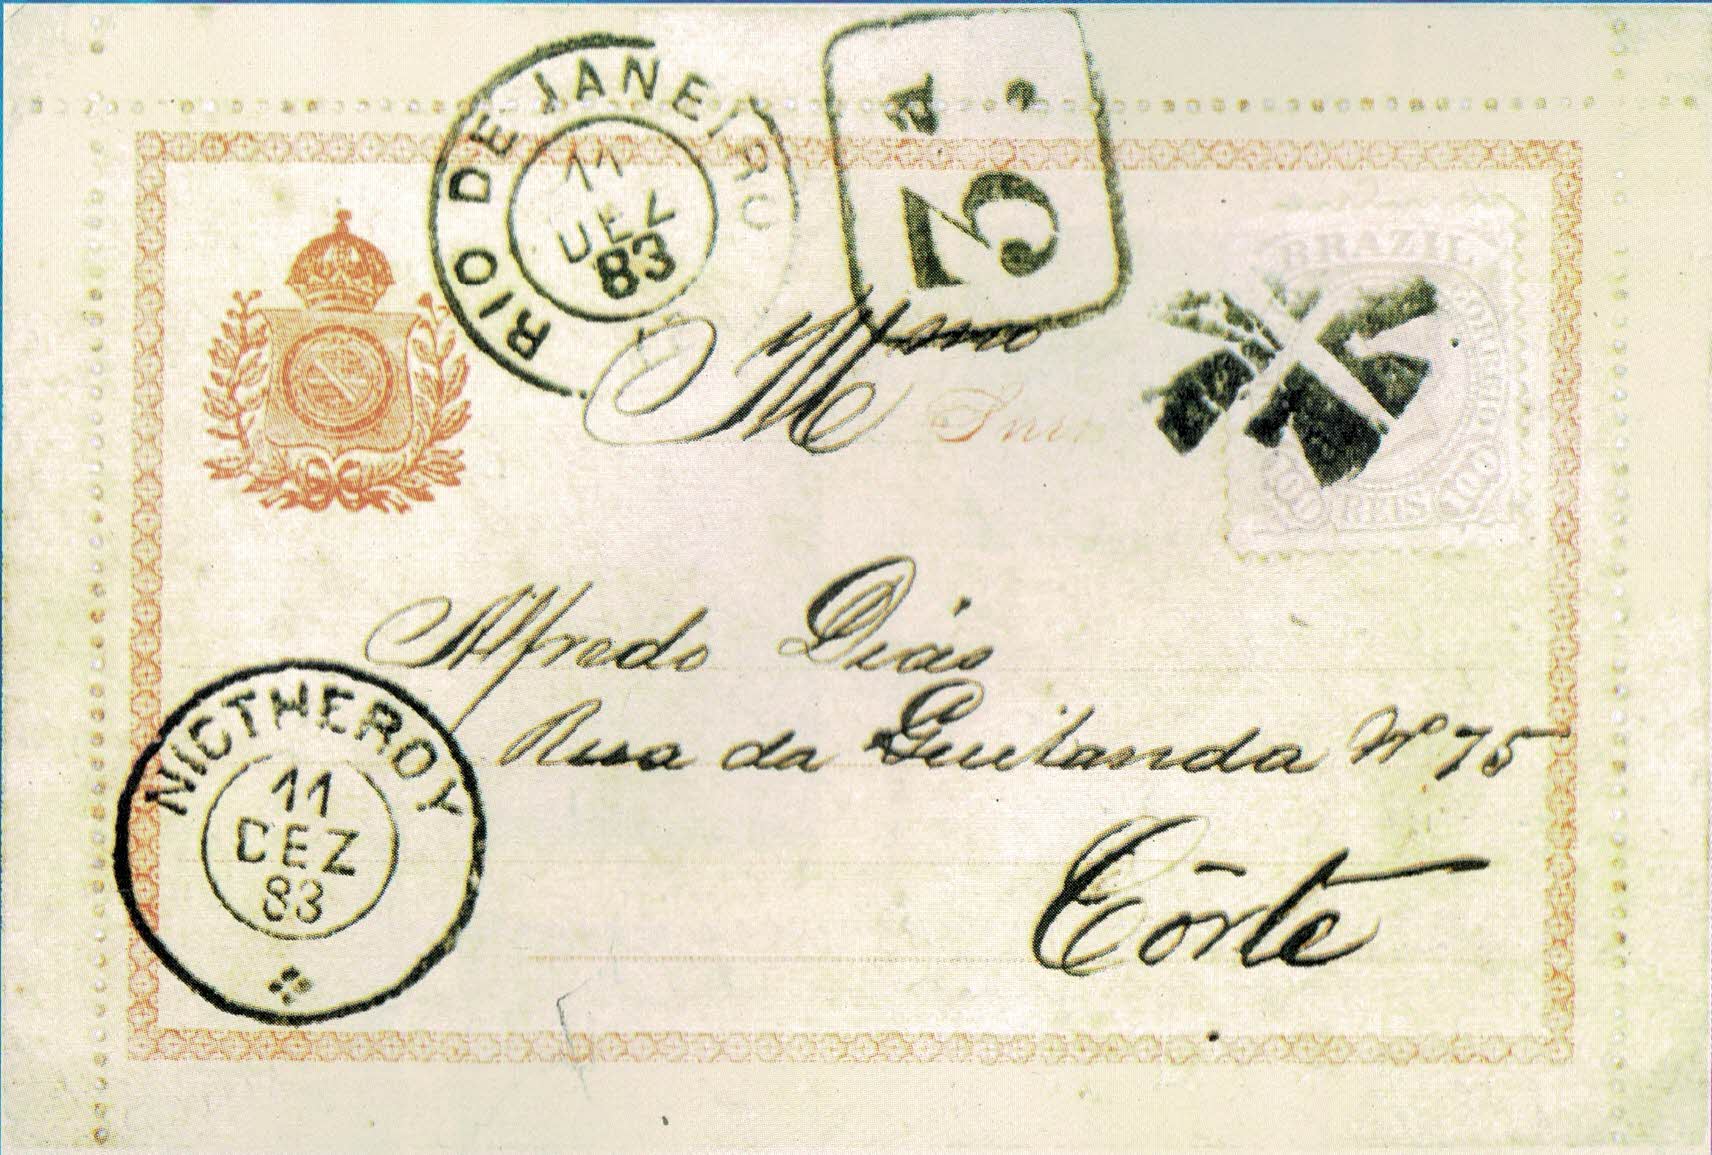 RIO DE JANEIRO
11
DEZ
83
2ª
BRAZIL
100 REIS 100
Illmo
Alfredo Dias
Rua da Quitanda Nº 75
Côrte
NICTHEROY
11
DEZ
83